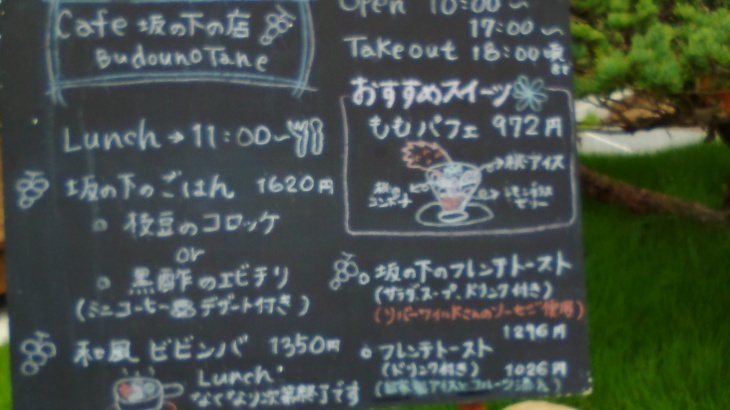 Cafe 坂の下の店
BudounoTane
Open 10:00〜
17:00〜
Takeout 18:00頃
まで
Lunch→11:00〜
坂の下のごはん 1620円
○ 枝豆のコロッケ
or
○ 黒酢のエビチリ
(ミニコーヒー デザート付き)
和風 ビビンバ 1350円
Lunch
なくなり次第終了です
おすすめスイーツ
ももパフェ 972円
桃アイス
コンポート
ゼリー
坂の下のフレンチトースト
(サラダ、スープ、ドリンク付き)
(リバーワイルドさんのソーセージ使用)
1296円
○ フレンチトースト
(ドリンク付き) 1026円